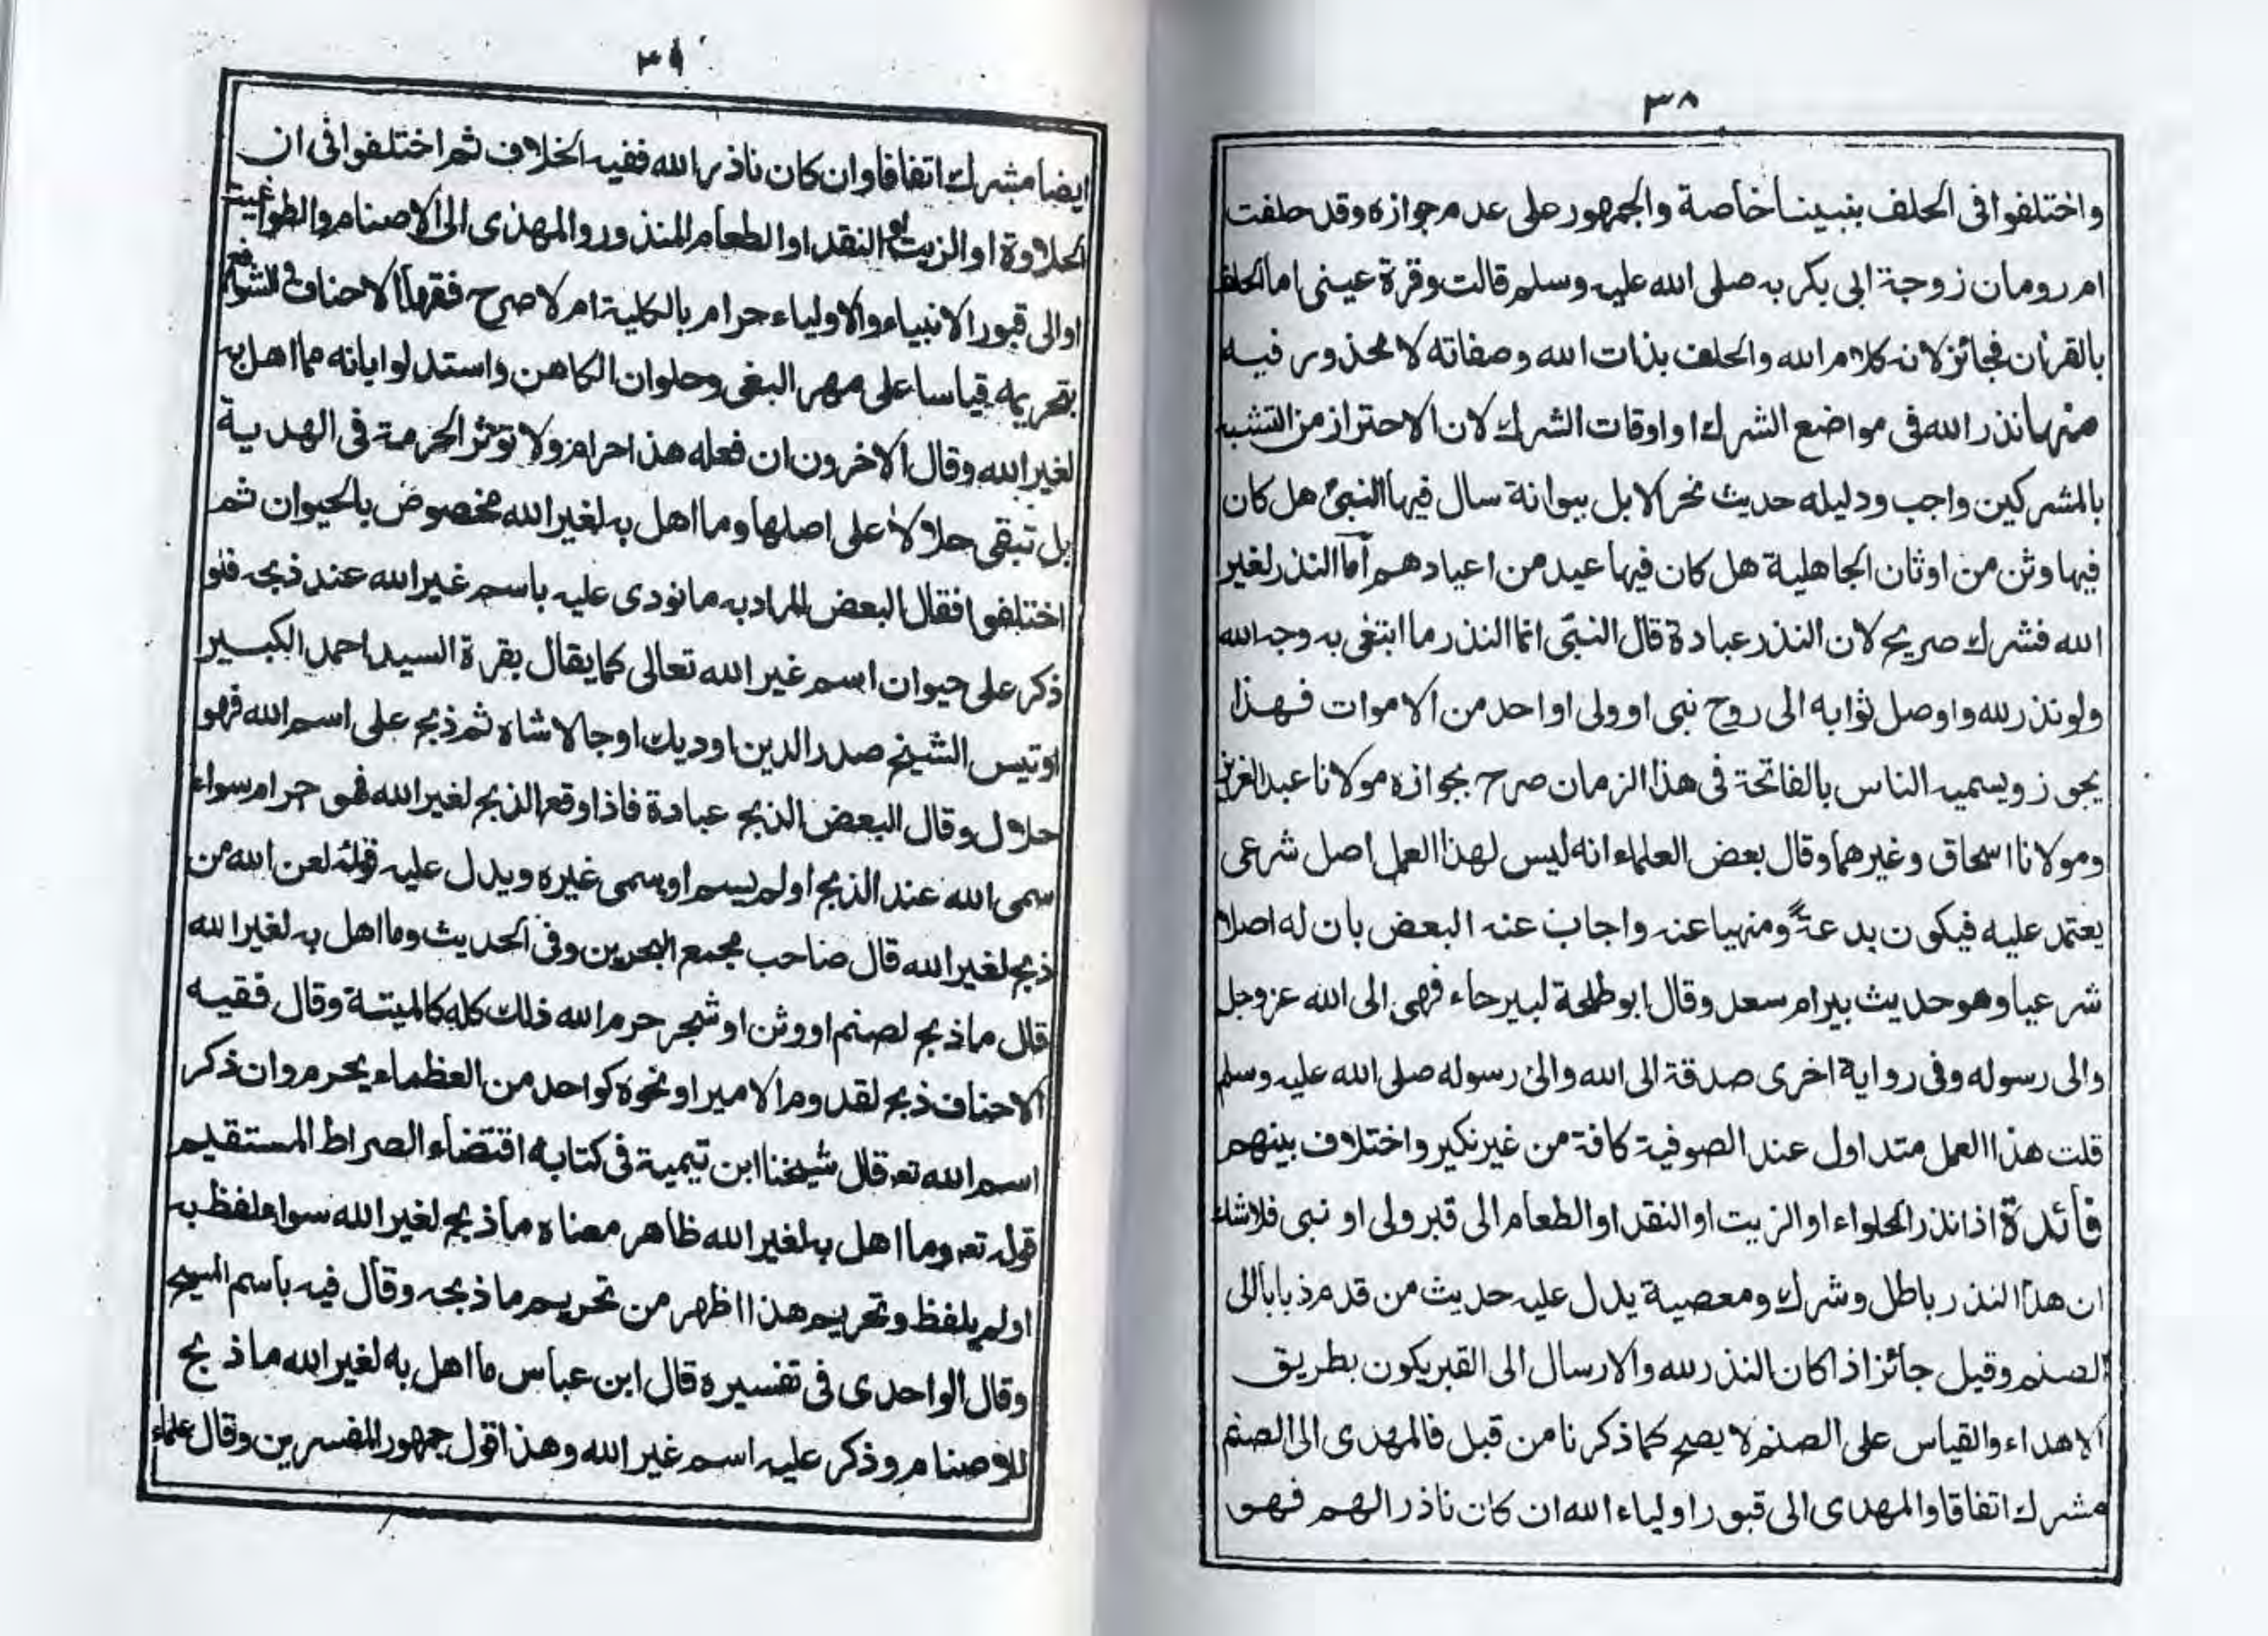 ٣٨
واختلفوا فی الحلف بنبینا خاصة والجمهور علی عدم جوازه وقد حلفت
ام رومان زوجة ابی بکر به صلی الله علیه وسلم قالت وقرة عینی اما الحلف
بالقرٰان فجائز لانه کلام الله والحلف بذات الله وصفاته لا محذور فیه
منها نذر الله فی مواضع الشرك او اوقات الشرك لان الاحتراز من التشبه
بالمشرکین واجب ودلیله حدیث نحر الابل ببوانة سال فیها النبیؐ هل کان
فیها وثن من اوثان الجاهلیة هل کان فیها عید من اعیادهم اما النذر لغیر
الله فشرك صریح لان النذر عبادة قال النبیؐ انما النذر ما ابتغی به وجه الله
ولو نذر لله واوصل ثوابه الی روح نبی او ولی او احد من الاموات فهذا
یجوز ویسمیه الناس بالفاتحة فی هذا الزمان صرح بجوازه مولانا عبد العزیز
ومولانا اسحاق وغیرهما وقال بعض العلماء انه لیس لهذا العمل اصل شرعی
یعتمد علیه فیکون بدعةً ومنهیا عنه واجاب عنه البعض بان له اصلا
شرعیا وهو حدیث بیر ام سعد وقال ابو طلحة لبیرحاء فهی الی الله عز وجل
والی رسوله وفی روایة اخری صدقة الی الله والیٰ رسوله صلی الله علیه وسلم
قلت هذا العمل متداول عند الصوفیة کافة من غیر نکیر واختلاف بینهم
فائدة اذا نذر الحلواء او الزیت او النقد او الطعام الی قبر ولی او نبی فلا شك
ان هذا النذر باطل وشرك ومعصیة یدل علیه حدیث من قدم ذبابا الی
الصنم وقیل جائز اذا کان النذر لله والارسال الی القبر یکون بطریق
الاهداء والقیاس علی الصنم لا یصح کما ذکرنا من قبل فالمهدی الی الصنم
مشرك اتفاقا والمهدی الی قبور اولیاء الله ان کان ناذرا لهم فهو
٣٩
ایضا مشرك اتفاقا وان کان ناذر الله ففیه الخلاف ثم اختلفوا فی ان
الحلاوة او الزیت او النقد او الطعام المنذور والمهدی الی الاصنام والطواغیت
او الی قبور الانبیاء والاولیاء حرام بالکلیة ام لا صرح فقهاء الاحناف والشوافع
بتحریمه قیاسا علی مهر البغی وحلوان الکاهن واستدلوا بانه مما اهل به
لغیر الله وقال الاخرون ان فعله هذا حرام ولا تؤثر الحرمة فی الهدیة
بل تبقی حلالا علی اصلها وما اهل به لغیر الله مخصوص بالحیوان ثم
اختلفوا فقال البعض المراد به ما نودی علیه باسم غیر الله عند ذبحه فلو
ذکر علی حیوان اسم غیر الله تعالی کما یقال بقرة السید احمد الکبیر
او تیس الشیخ صدر الدین او دیك اوجالا شاه ثم ذبح علی اسم الله فهو
حلال وقال البعض الذبح عبادة فاذا وقع الذبح لغیر الله فهو حرام سواء
سمی الله عند الذبح او لم یسم او سمی غیره ویدل علیه قوله لعن الله من
ذبح لغیر الله قال صاحب مجمع البحرین وفی الحدیث وما اهل به لغیر الله
قال ما ذبح لصنم او وثن او شجر حرم الله ذلك کله کالمیتة وقال فقیه
الاحناف ذبح لقدوم الامیر او نحوه کواحد من العظماء یحرم وان ذکر
اسم الله تعـ قال شیخنا ابن تیمیة فی کتابه اقتضاء الصراط المستقیم
قوله تعـ وما اهل به لغیر الله ظاهر معناه ما ذبح لغیر الله سواء لفظ به
او لم یلفظ وتحریم هذا اظهر من تحریم ما ذبحه وقال فیه باسم المسیح
وقال الواحدی فی تفسیره قال ابن عباس ما اهل به لغیر الله ما ذبح
للاصنام وذکر علیه اسم غیر الله وهذا قول جمهور المفسرین وقال علماء